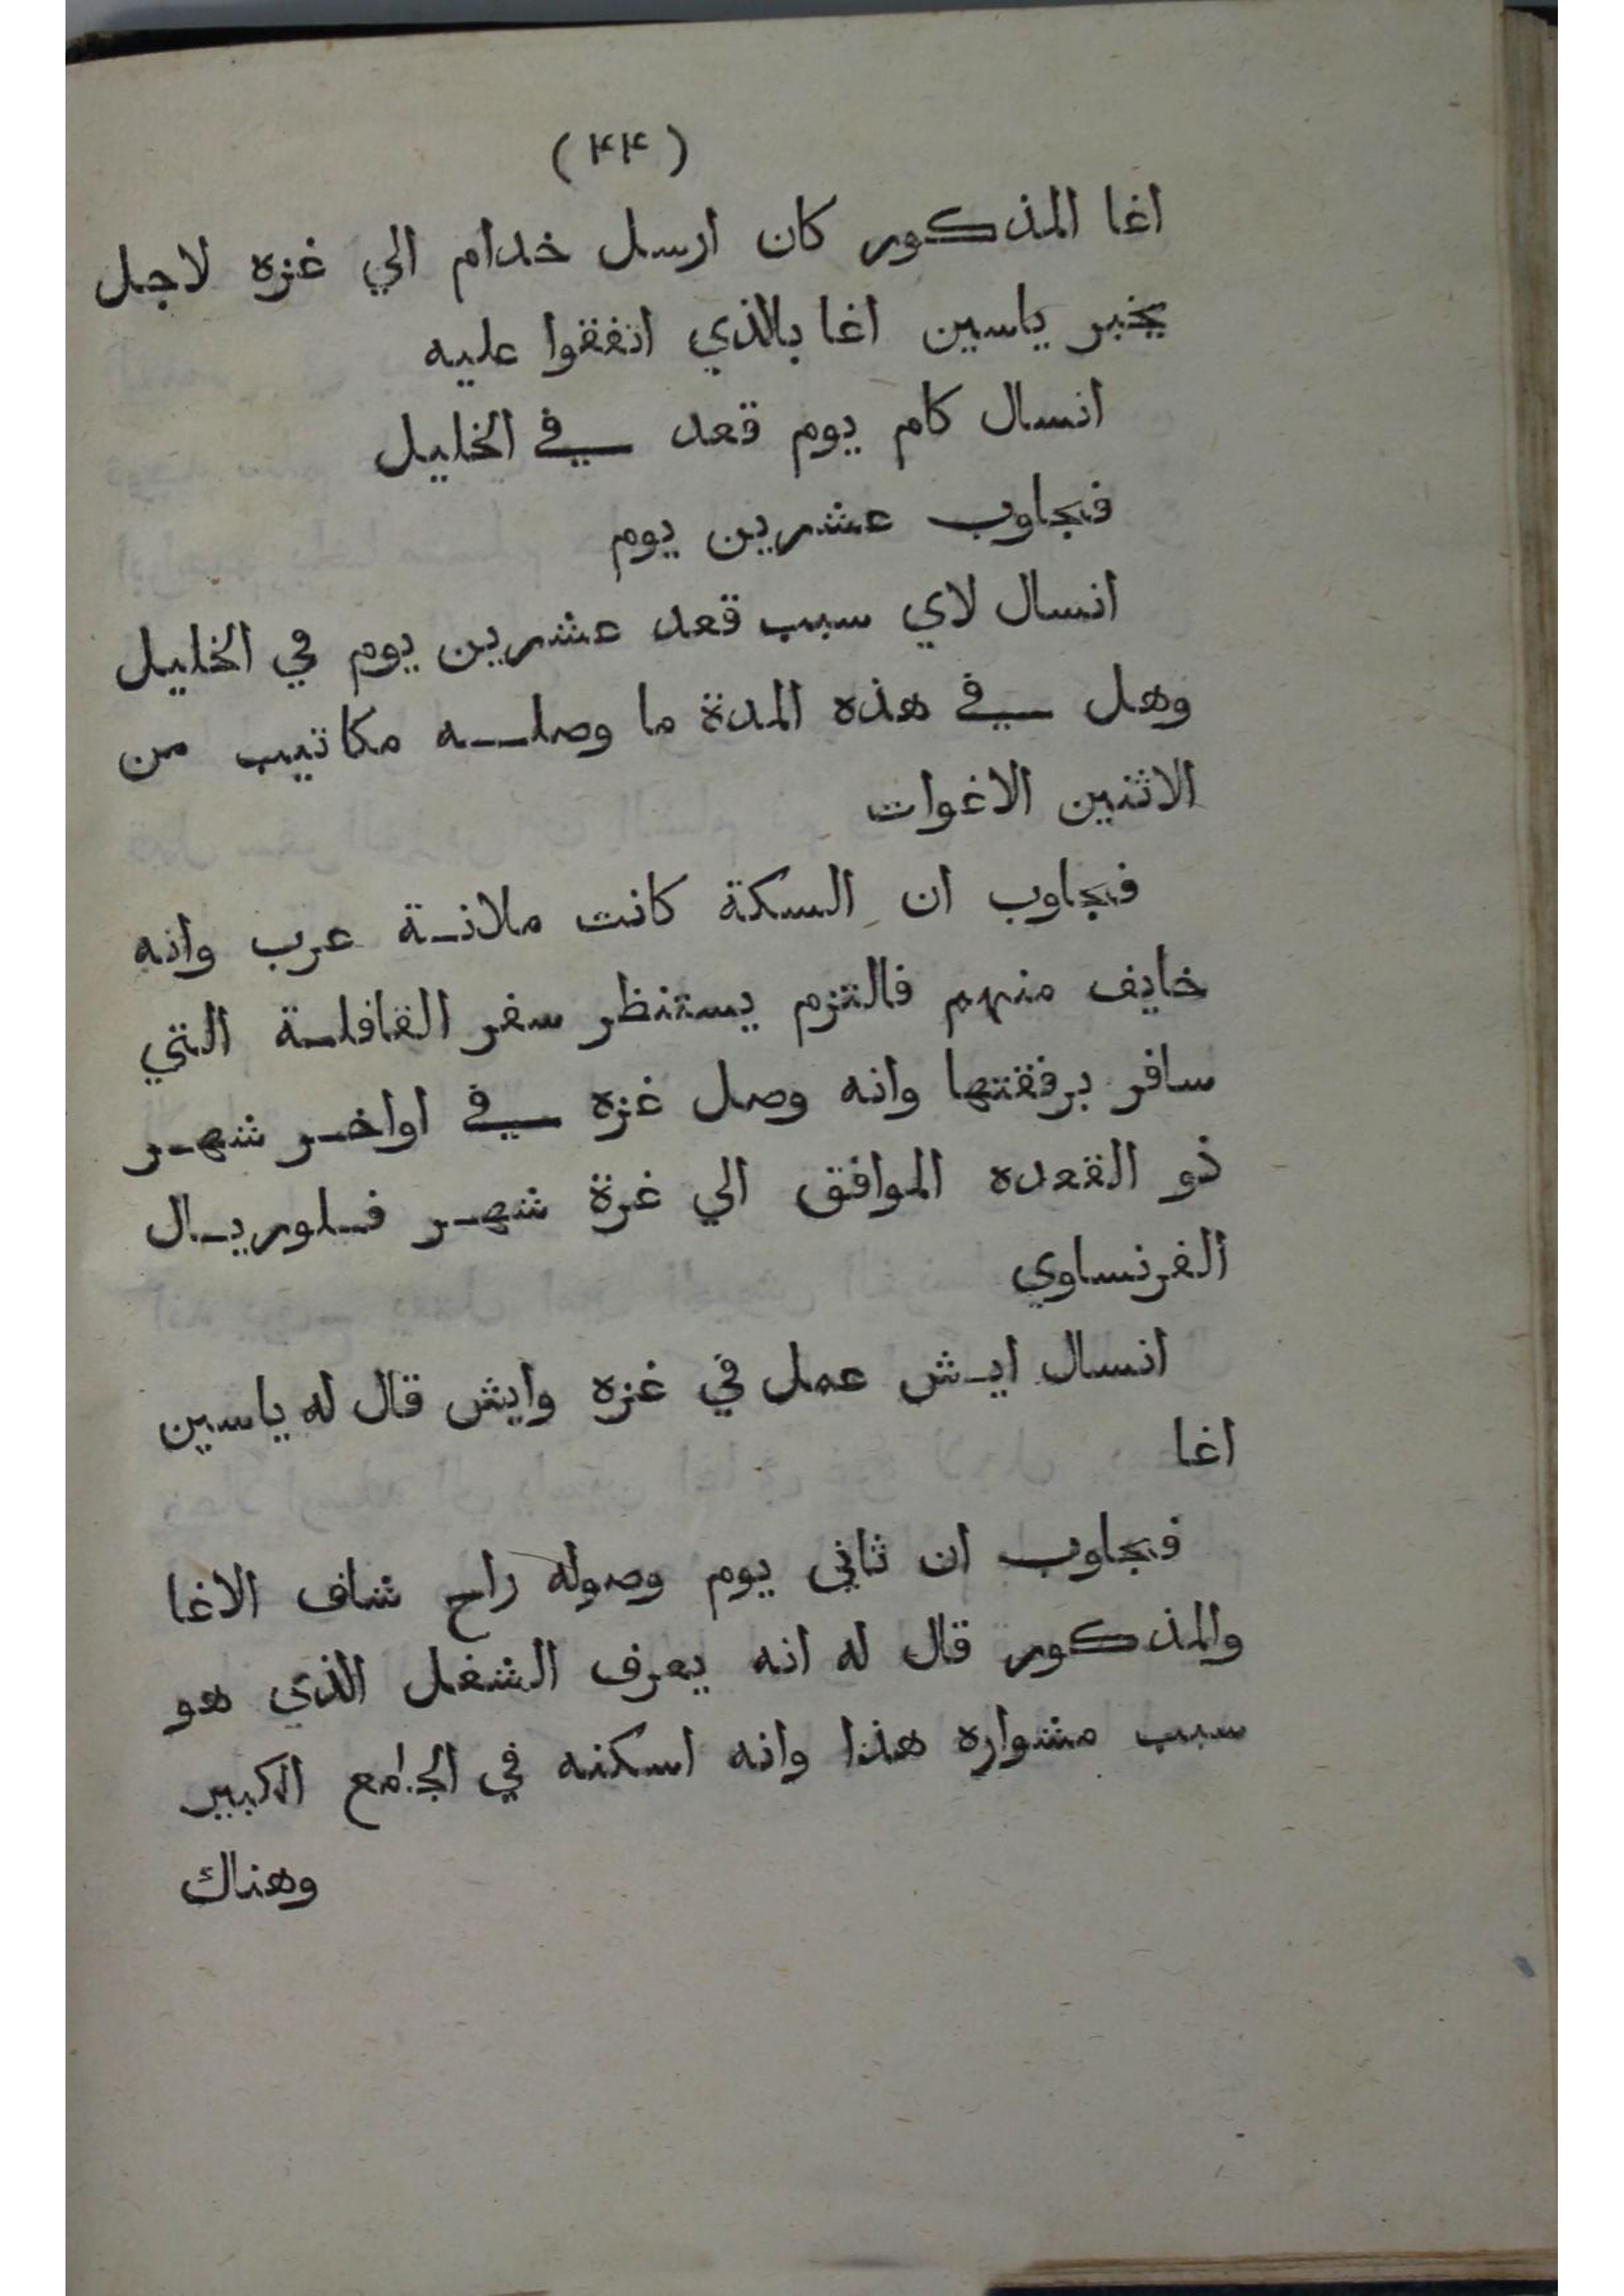 (٤٤)
اغا المذكور كان ارسل خدام الي غزه لاجل
يخبر ياسين اغا بالذي اتفقوا عليه
انسال كام يوم قعد في الخليل
فجاوب عشرين يوم
انسال لاي سبب قعد عشرين يوم في الخليل
وهل في هذه المدة ما وصله مكاتيب من
الاثنين الاغوات
فجاوب ان السكة كانت ملانة عرب وانه
خايف منهم فالتزم يستنظر سفر القافلة التي
سافر برفقتها وانه وصل غزه في اواخر شهر
ذو القعده الموافق الي غرة شهر فلوريال
الفرنساوي
انسال ايش عمل في غزه وايش قال له ياسين
اغا
فجاوب ان ثاني يوم وصوله راح شاف الاغا
والمذكور قال له انه يعرف الشغل الذي هو
سبب مشواره هذا وانه اسكنه في الجامع الكبير
وهناك